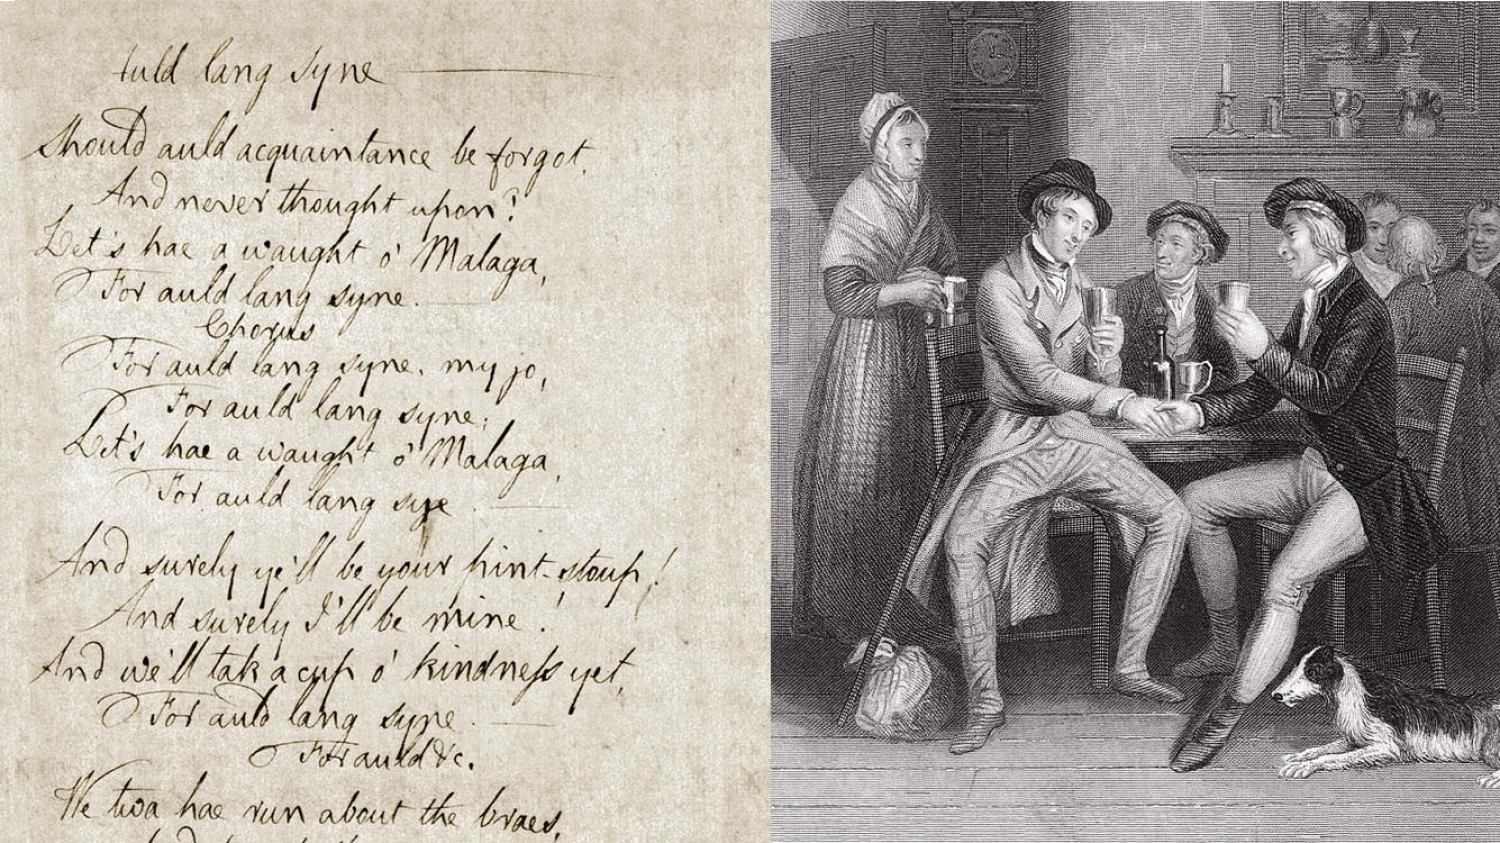 Auld lang syne
Should auld acquaintance be forgot,
And never thought upon?
Let's hae a waught o' Malaga,
For auld lang syne.
Chorus
For auld lang syne, my jo,
For auld lang syne;
Let's hae a waught o' Malaga,
For auld lang syne
And surely ye'll be your pint-stoup!
And surely I'll be mine!
And we'll tak a cup o' kindness yet,
For auld lang syne.
For auld &c.
We twa hae run about the braes,